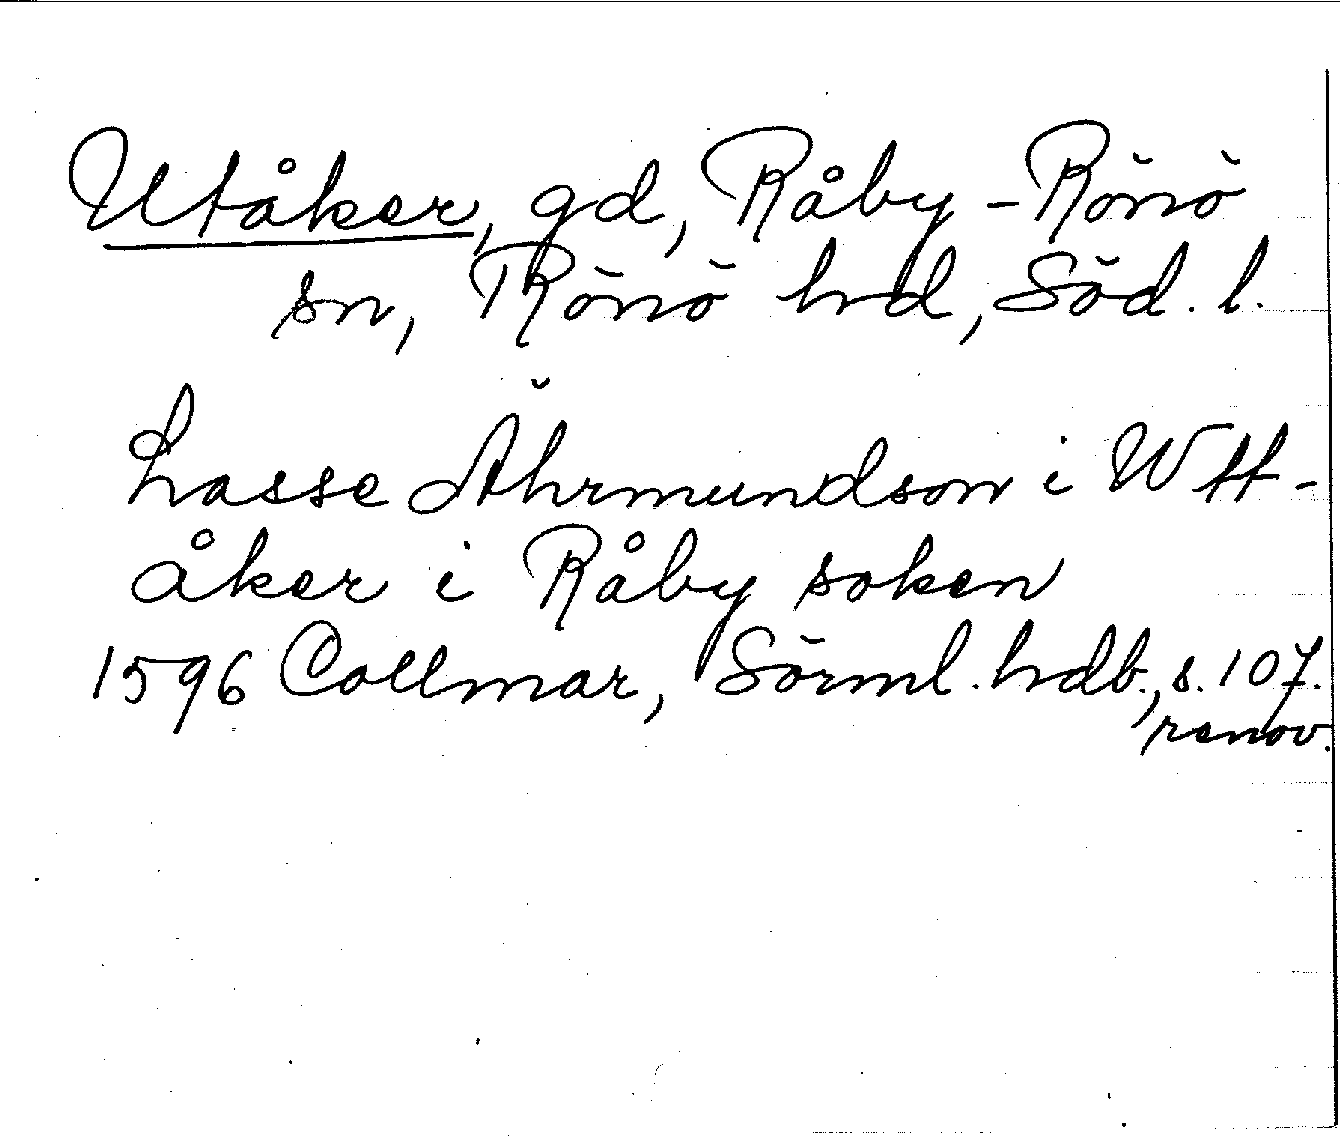 Utåker, gd, Råby-Rönö
sn, Rönö hd, Söd. l.
Lasse Ährmundson i Wtt-
åker i Råby soken
1596 Collmar, Sörml. hdb., s. 107.
renov.